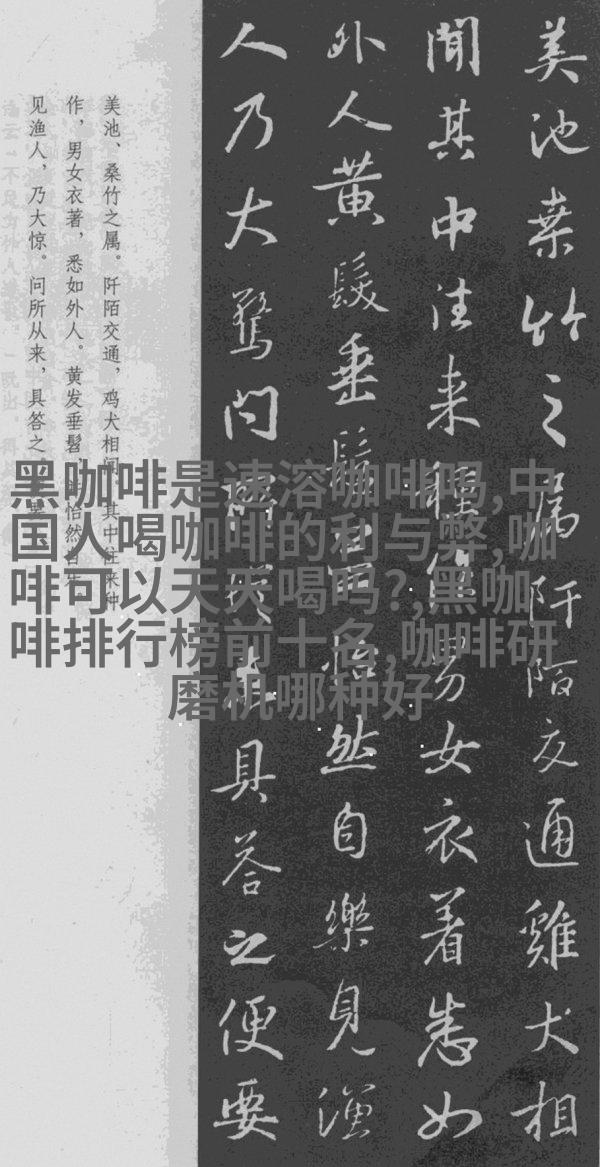 美池桒竹之属阡陌交通雞犬相
聞其中往来種作男女衣着悉如
外人黄髮垂髫怡然自樂見漁
人乃大驚問所従来具答之便要
美池、桑竹之属。阡陌交通，鸡犬相闻。其中往来种
作，男女衣著，悉如外人。黄发垂髫，并怡然自乐
见渔人，乃大惊。问所从来，具答之
黑咖啡是速溶咖啡吗,中
国人喝咖啡的利与弊,咖
啡可以天天喝吗?,黑咖
啡排行榜前十名,咖啡研
磨机哪种好